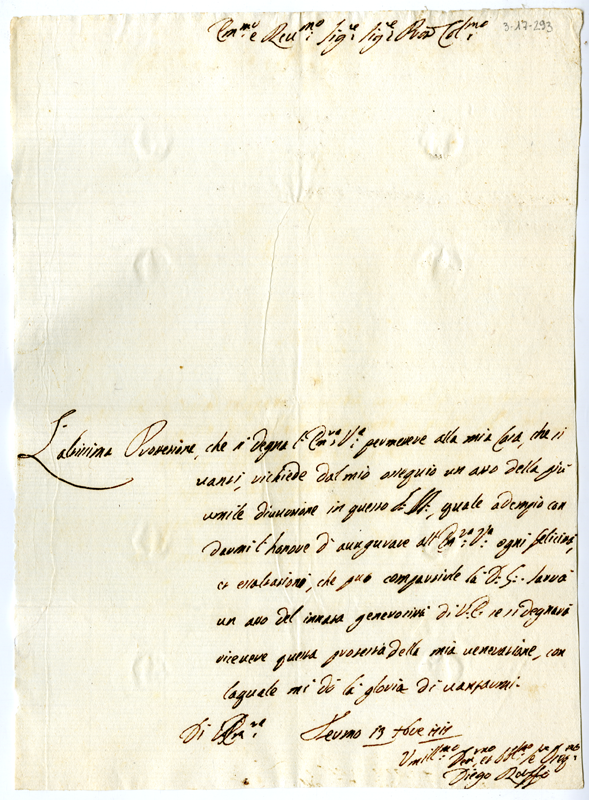 Em.mo e Reu.mo Sig.re Sig.re Pron Col.mo
3-17-293
L'altissima Protettione, che si degna l' Em.za V.a permettere alla mia Casa, che si
uanti, richiede dal mio ossequio un atto della più
umile diuotione in queste, quale adempio con
darmi l'honore d' auugurare all' Em.za V.a ogni felicità,
et esaltatione, che può compartirle la D. G. Sarrà
un atto del innata generosità di V.E. se si degnarà
riceuere questa protesta della mia ueneratione, con
la quale mi dò la gloria di uantarmi.
Di V. Em.za Fermo 13 xbre
Umill.mo Diu.mo et Obl.mo
Diego Raffo